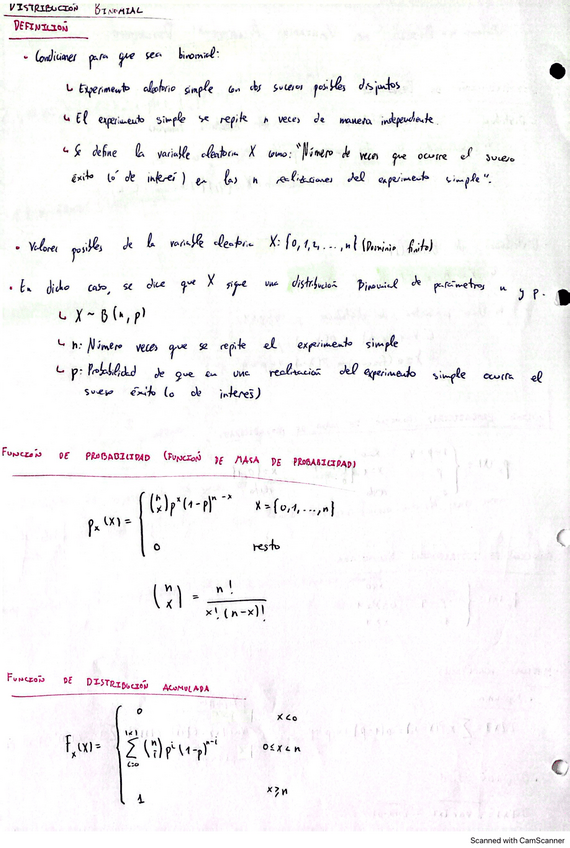 DISTRIBUCIÓN BINOMIAL
DEFINICIÓN
• Condiciones para que sea binomial:
↳ Experimento aleatorio simple con dos sucesos posibles disjuntos
↳ El experimento simple se repite n veces de manera independiente.
↳ Se define la variable aleatoria X como: "Número de veces que ocurre el suceso
éxito (o de interés) en las n realizaciones del experimento simple".
• Valores posibles de la variable aleatoria X: {0,1,2,...,n} (Dominio finito)
• En dicho caso, se dice que X sigue una distribución Binomial de parámetros n y p.
↳ X ~ B(n,p)
↳ n: Número veces que se repite el experimento simple
↳ p: Probabilidad de que en una realización del experimento simple ocurra el
suceso éxito (o de interés)
FUNCIÓN DE PROBABILIDAD (FUNCIÓN DE MASA DE PROBABILIDAD)
pₓ(X) = { (n x) pˣ (1-p)ⁿ⁻ˣ X = {0,1,...,n}
0 resto
(n x) = n! / x!(n-x)!
FUNCIÓN DE DISTRIBUCIÓN ACUMULADA
0 x<0
Fₓ(X) = { Σ i=0 |x| (n i) pⁱ (1-p)ⁿ⁻ⁱ 0≤x<n
1 x≥n
Scanned with CamScanner